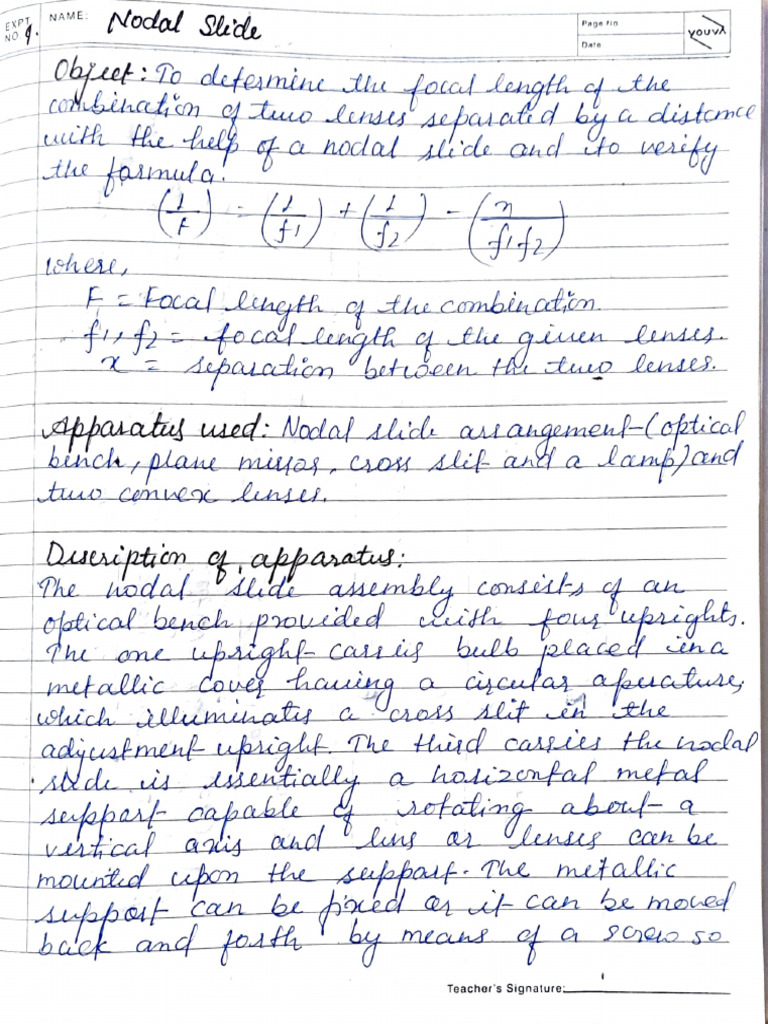 EXPT NO 9. NAME: Nodal Slide Page No Date YOUVA
Object: To determine the focal length of the
combination of two lenses separated by a distance
with the help of a nodal slide and to verify
the formula.
(1/F) = (1/f1) + (1/f2) - (x/f1.f2)
where,
F = Focal length of the combination.
f1, f2 = focal length of the given lenses.
x = separation between the two lenses.
Apparatus used: Nodal slide arrangement (optical
bench, plane mirror, cross slit and a lamp) and
two convex lenses.
Discription of apparatus:
The nodal slide assembly consists of an
optical bench provided with four uprights.
The one upright carries bulb placed in a
metallic cover having a circular aperature,
which illuminates a cross slit in the
adjustment upright. The third carries the nodal
slide is essentially a horizontal metal
support capable of rotating about a
vertical axis and lens or lenses can be
mounted upon the support. The metallic
support can be fixed or it can be moved
back and forth by means of a screw so
Teacher's Signature: